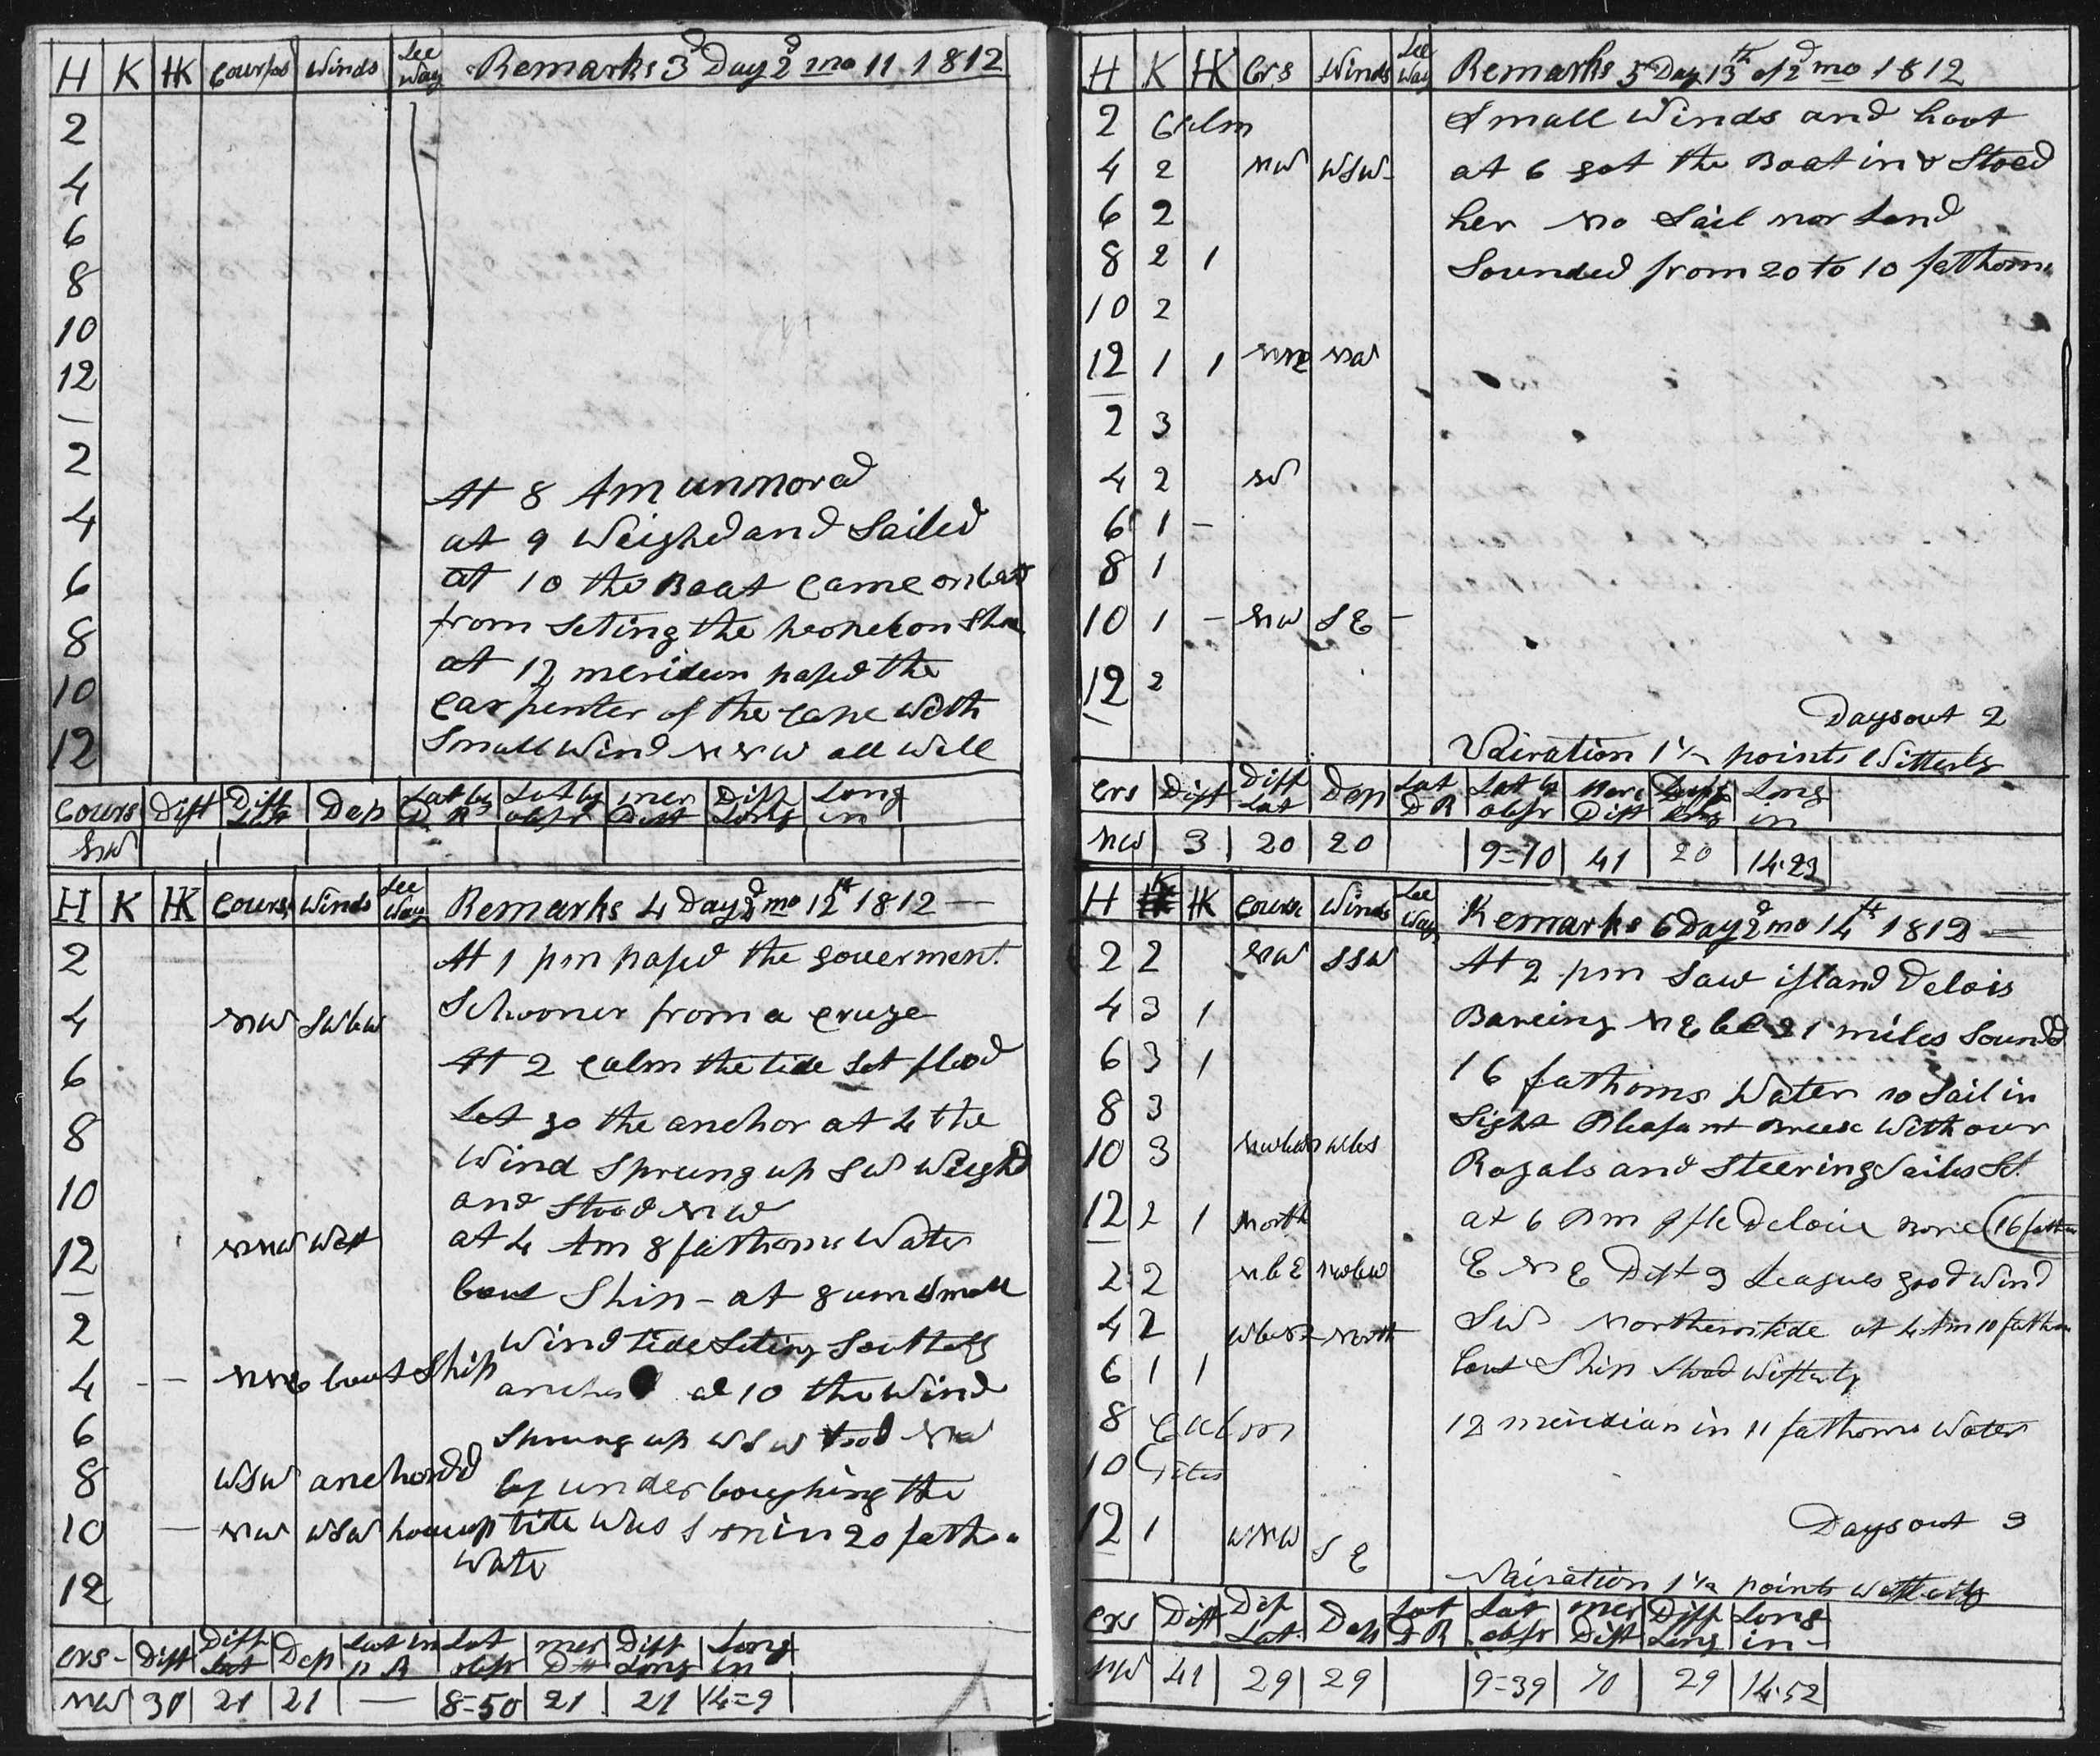 H K HK Courses Winds Lee Way Remarks 3d Day 2d mo 11 1812
2
4
6
8
10
12
2
4 At 8 Am unmord
at 9 Weighed and Sailed
6 at 10 the Boat Came on board
8 from Seting the on Shore
at 12 meridean pased the
10 Carpenter of the Cape With
12 Small Wind NNW all Well
Cours Dist Diff Lat Dep Lat by D R Lat by obsr mer Dist Diff Long Long in
NW
H K HK Cours Winds Lee Way Remarks 4 Day 2d mo 12th 1812 —
2 At 1 pm pased the goverment
4 NW SWbW Schooner from a Cruze
6 At 2 Calm the tide Set flood
8 Let go the anchor at 4 the
Wind Sprung up SW Weighd
10 and Stood NW
12 NNW West at 4 Am 8 fathoms Water
bout Ship - at 8 am Small
2 Wind tide Seting Southerly
4 - - NNE bout Ship anchd at 10 the Wind
6 Sprung up WSW NW
8 WSW anchordd by under boughing the
10 — NW WSW hove up tide was in 20 fath
Water
12
Crs - Dist Diff Lat Dep Lat in D R Lat obsr mer Dist Diff Long Long in
NW 30 21 21 — 8=50 21 21 14=9
H K HK Crs Winds Lee Way Remarks 5 Day 13th of 2d mo 1812
2 Calm Small Winds and hoot
4 2 NW WSW - at 6 got the Boat in & Stoed
6 2 her no Sail nor Land
8 2 1 Sounded from 20 to 10 fathoms
10 2
12 1 1 NNE NW
2 3
4 2 NW
6 1 -
8 1
10 1 - NW SE -
12 2
Days out 2
Vairation 1½ points Witterly
Crs Dist Diff Lat Dep Lat D R Lat by obsr Mer Dist Long Long in
NW 3 20 20 9=10 41 20 14.23
H K HK Course Winds Lee Way Remarks 6 Day 2d mo 14th 1812 —
2 2 NW SSW At 2 pm Saw island Delois
4 3 1 Bareing NEbE 21 miles Soundd
6 3 1 16 fathoms Water no Sail in
8 3 Sight Pleasant Breese With our
10 3 NWbW WbS Royals and Steering Sailes St
12 2 1 North at 6 Pm Isle Deloie bore 16 fathm
2 2 NbE NWbW E N E Dist 3 Leagues good Wind
4 2 WbN North SW Northern tide at 4 Am 10 fathm
6 1 1 bout Ship Stood Wisterly
8 Calm 12 meridian in 11 fathoms Water
10
12 1 WNW SE Days out 3
Vairation 1½ points Westerly
Crs Dist Dif Lat Dep Lat D R Lat obsr mer Dist Diff Long Long in -
NW 41 29 29 9=39 70 29 14.52